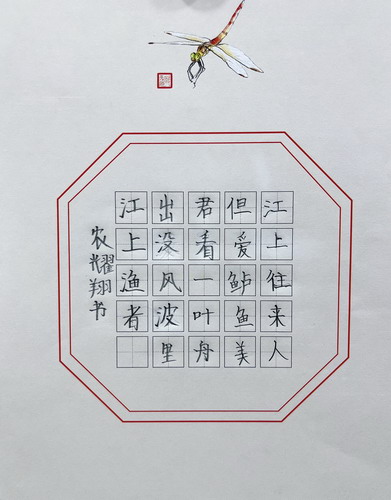 江上往来人
但爱鲈鱼美
君看一叶舟
出没风波里
江上渔者
农耀翔书